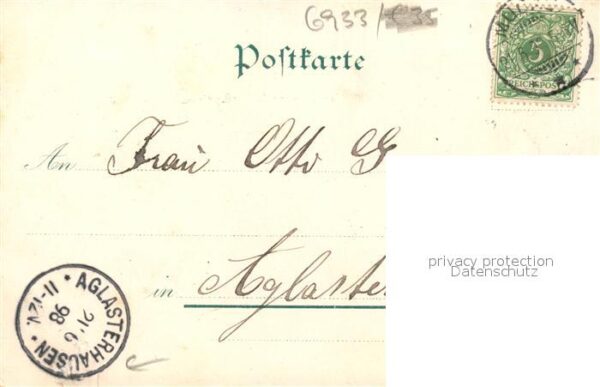 6933/C35
Postkarte
5
REICHSPOST
An Frau Otto G
privacy protection
Datenschutz
in Aglaste
AGLASTERHAUSEN
21.6
98
11-12V.